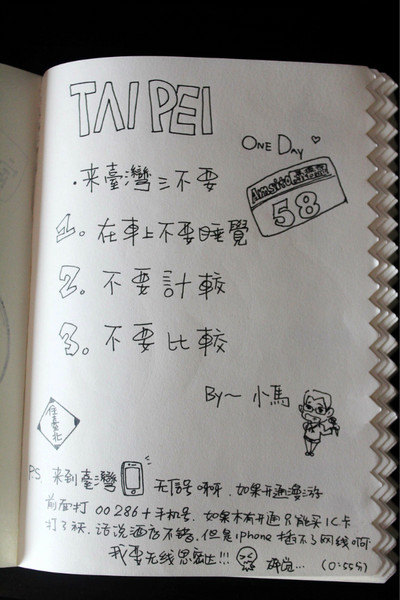 TAIPEI
ONE DAY
·来臺灣三不要
58
1。在車上不要睡覺
2。不要計較
3。不要比較
By～ 小馬
住臺北
P.S 来到臺灣 无信号呀呀.如果开通漫游
前面打 00286+手机号.如果木有开通只能买IC卡
打了.话说酒店不错.但是iphone 插不了网线啊
我要无线思密达!!! 碎觉… (0:55分)